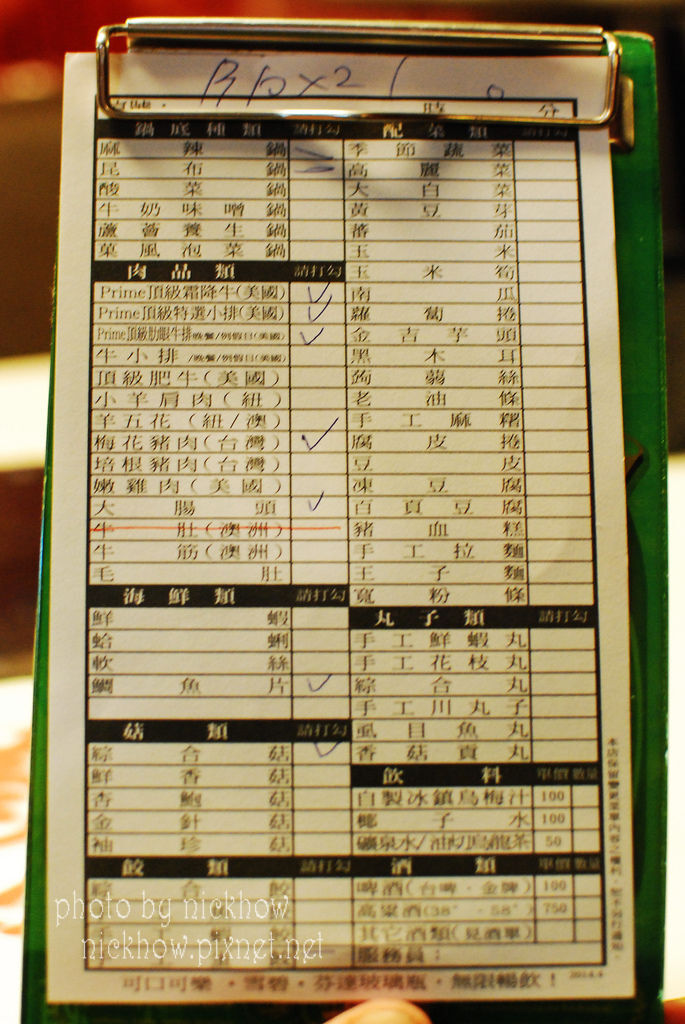 時 分
鍋底種類 請打勾
麻辣鍋
昆布鍋
酸菜鍋
牛奶味噌鍋
蘆薈養生鍋
菓風泡菜鍋
肉品類 請打勾
Prime頂級霜降牛(美國)
Prime頂級特選小排(美國)
Prime頂級肋眼牛排晚餐/例假日(美國)
牛小排/晚餐/例假日(美國)
頂級肥牛(美國)
小羊肩肉(紐)
羊五花(紐/澳)
梅花豬肉(台灣)
培根豬肉(台灣)
嫩雞肉(美國)
大腸頭
牛肚(澳洲)
牛筋(澳洲)
毛肚
海鮮類 請打勾
鮮蝦
蛤蜊
軟絲
鯛魚片
菇類 請打勾
綜合菇
鮮香菇
杏鮑菇
金針菇
袖珍菇
餃類 請打勾
綜合餃
配菜類 請打勾
季節蔬菜
高麗菜
大白菜
黃豆芽
蕃茄
玉米
玉米筍
南瓜
蘿蔔捲
金吉芋頭
黑木耳
蒟蒻絲
老油條
手工麻糬
腐皮捲
豆皮
凍豆腐
百頁豆腐
豬血糕
手工拉麵
王子麵
寬粉條
丸子類 請打勾
手工鮮蝦丸
手工花枝丸
綜合丸
手工川丸子
虱目魚丸
香菇貢丸
飲料 單價 數量
自製冰鎮烏梅汁 100
椰子水 100
礦泉水/油切烏龍茶 50
酒類 單價 數量
啤酒(台啤·金牌) 100
高粱酒(38°·58°) 750
其它酒類(見酒單)
服務員:
可口可樂·雪碧·芬達玻璃瓶·無限暢飲!
photo by nickhow
nickhow.pixnet.net